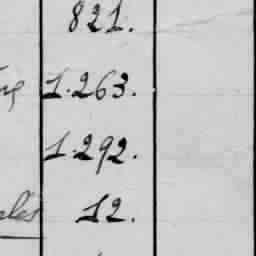 821.
1.263.
1.292.
12.